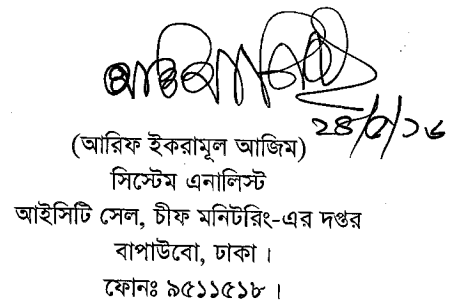 (আরিফ ইকরামূল আজিম)
সিস্টেম এনালিস্ট
আইসিটি সেল, চীফ মনিটরিং-এর দপ্তর
বাপাউবো, ঢাকা ।
ফোনঃ ৯৫১১৫১৮ ।